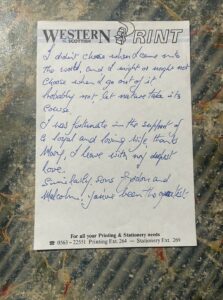 WESTERN PRINT
SCOTTISH
I didn't choose when I came into
the world, and I might or might not
choose when I go out of it.
Probably not, let nature take its
course.
I was fortunate in the support of
a loyal and loving wife, thanks
Mary, I leave with my deepest
love.
Similarly sons Gordon and
Malcolm, you've been the greatest.
For all your Printing & Stationery needs
☎ 0563-22551 Printing Ext. 264 — Stationery Ext. 269